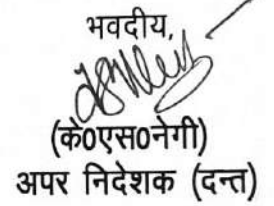 भवदीय,
(के0एस0नेगी)
अपर निदेशक (दन्त)